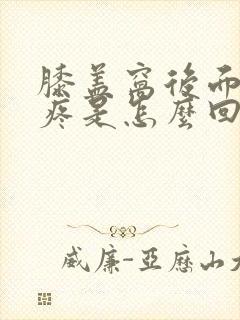 膝盖窝后面
疼是怎麼回
威廉-亞歷山大